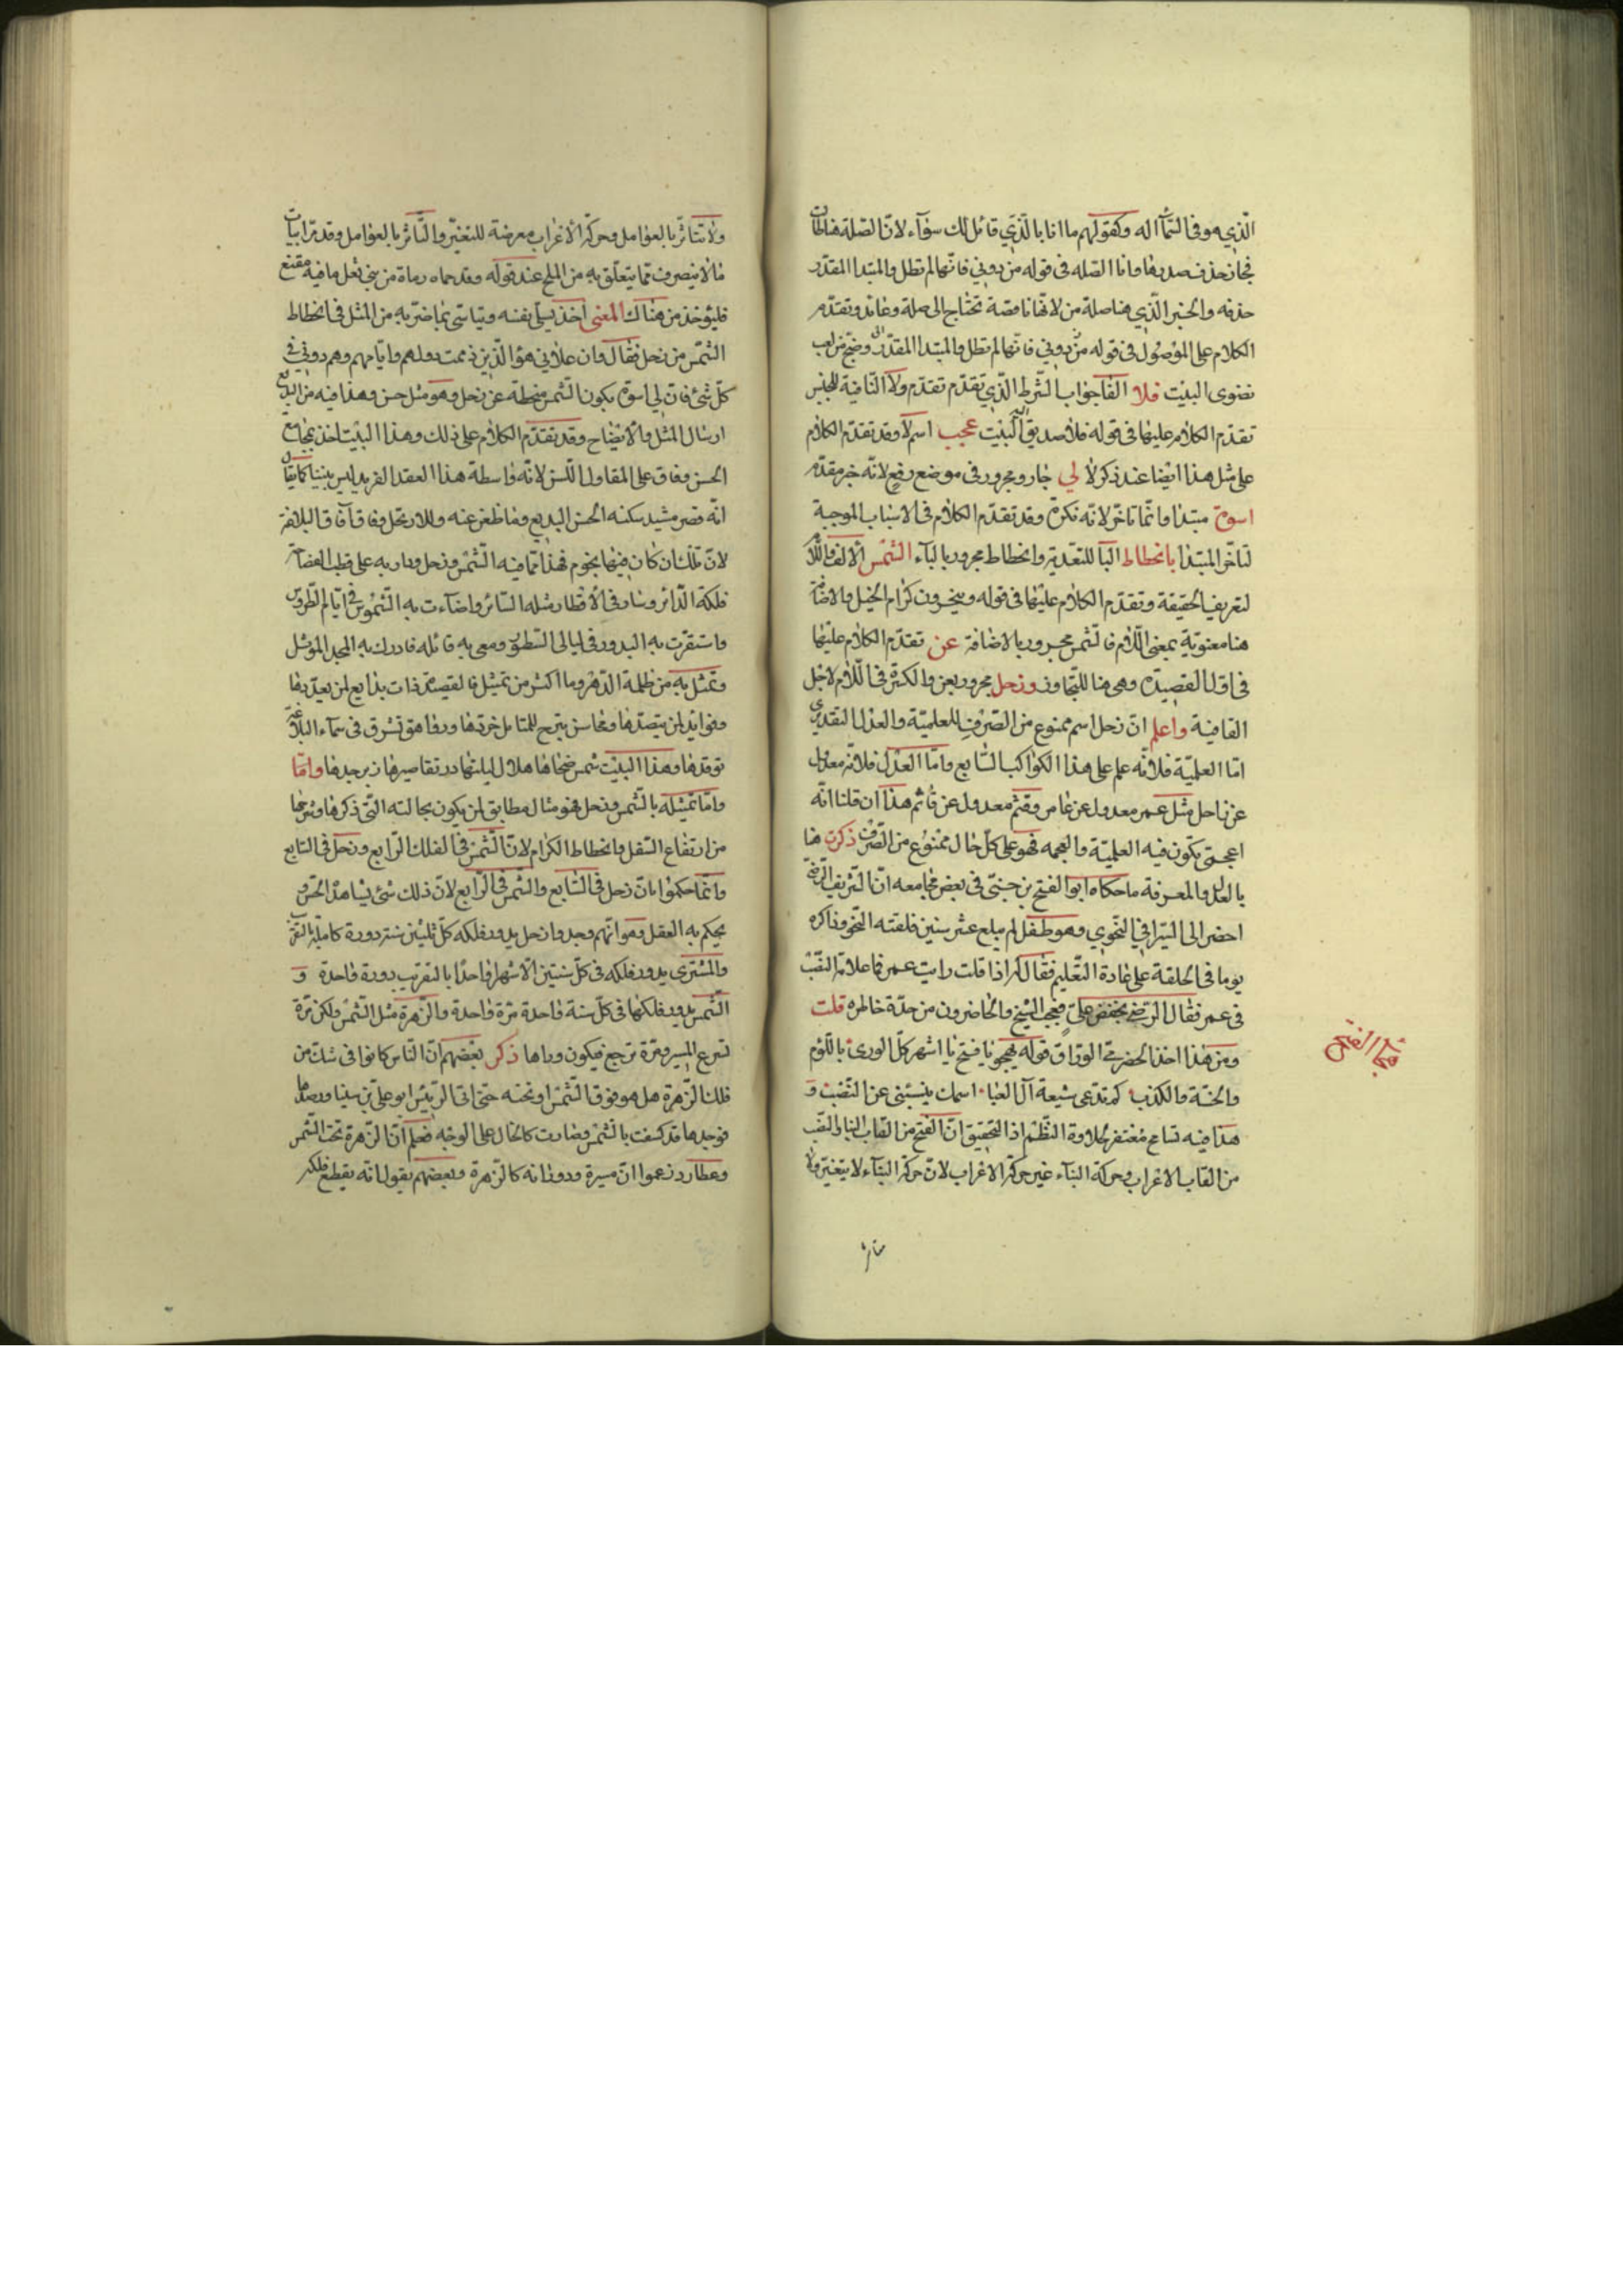 الّذي هو في السّماء اله وكقولهم ما انا بالّذي قائل لك سوآء لانّ الصّلة هنا طالت
فجاز حذف صدرها واما الصّله فى قوله من دوني فانّها لم تطل والمبتدا المقدّر
حذفه والخبر الّذي هنا صلة من لانّها ناقصة تحتاج الى صلة وعائد وتقدّم
الكلام على الموصول فى قوله من دوني فانّها لم تطل والمبتدا المقدّر
البيت فلا الفا جواب الشّرط الّذي تقدّم تقدّم ولا النّافية للجنس
تقدّم الكلام عليها فى قوله فلا صديق اليه البيت عجب اسم لا وقد تقدّم الكلام
على مثل هذا ايضا عند ذكر لا لي جار ومجرور فى موضع رفع لانّه خبر مقدّم
اسوة مبتدا وانّما تاخّر لانّه نكرة وقد تقدّم الكلام فى الاسباب الموجبة
لتاخّر المبتدا بانحطاط البا للتعدية وانحطاط مجرور بالباء الشّمس الالف واللّام
لتعريف الحقيقة وتقدّم الكلام عليها فى قوله كرام الخيل والاضافة
هنا معنويّة بمعنى اللّام فالشّمس مجرور بالاضافة عن تقدّم الكلام عليها
فى اوّل القصيدة وهي هنا للتجاوز وزحل مجرور بعن والكسرة فى اللّام لاجل
القافية واعلم انّ زحل اسم ممنوع من الصّرف للعلميّة والعدل التقديري
امّا العلميّة فلانّه علم على هذا الكوكب السّابع وامّا العدل فلانّه معدول
عن زاحل مثل عمر معدول عن عامر وقثم معدول عن قاثم هذا ان قلنا انّه
اعجميّ يكون فيه العلميّة والعجمه فهو على كلّ حال ممنوع من الصّرف ذكرت هنا
بالعدل والمعرفة ما حكاه ابو الفتح بن جنّي فى بعض مجامعه انّ الشّريف الرّضيّ
احضر الى السّيرافي النّحوي وهو طفل لم يبلع عشر سنين فلقّنه النّحو وذاكره
يوما في الحلقة على عادة التّعليم فقال له اذا قلت رايت عمر فما علامة النّصب
فى عمر فقال الرّضيّ بغض عليّ فعجب الشّيخ والحاضرون من حدّة خاطره قلت
ومن هذا اخذ الحضرميّ الورّاق قوله يهجو يا فتح يا اشهر كلّ الورى باللّوم
والخسّة والكذب كم تدعى شيعة آل العبا اسمك ينبئني عن النّصب و
هذا فيه تسامح مغتفر لحلاوة النّظم اذ التّحقيق انّ الفتح من القاب البنا والنّصب
من القاب الاعراب وحركة البنآء غير حركة الاعراب لانّ حركة البنآء لا تتغيّر ولا
تتاثر
ولا تتاثّر بالعوامل وحركة الاعراب معرضة للتغيّر والتّاثّر بالعوامل وقد مرّ ابيات
ما لا ينصرف ممّا يتعلّق به من الملح عند قوله وقد حماه رماة من بني ثعل ما فيه مقنع
فليؤخذ من هناك المعنى اخذ يسلّي نفسه ويتاسّى بما ضرّ به من المثل فى انحطاط
الشّمس من زحل فقال وان علاني هؤ الّذين ذممت دولهم وايّامهم وهم دوني فى
كلّ شئ فانّ لي اسوة بكون الشّمس منحطّة عن زحل وهو مثل حسن وهذا فيه من البديع
ارسال المثل والايضاح وقد تقدّم الكلام على ذلك وهذا البيت اخذ بمجامع
الحسن وفاق على المقاول اللّسن لانّه واسطة هذا العقد الفريد ليس بيتا كما يقال
انّه قصر مشيد سكنه الحسن البديع وما ظعن عنه ولا ارتحل وفاق آفاق البلاغة
لانّ تلك ان كان فيها نجوم فهذا ممّا فيه الشّمس وزحل ودار به على قطب الفصاحة
فلكه الدّائر وسار فى الاقطار مثله السّائر واضآءت به الشّموس فى ايّام الطّروس
واستقرّت به البدور فى ليالى السّطور وسعى به قائله فادرك به المجد الموثّل
وتمثّل به من ظلمه الدّهر وما اكثر من تمثّل فالقصيدة ذات بدايع لمن يعدّ بها
وفوايد لمن يتصدّها ومحاسن وزها هو تشرق فى سماء البلاغة
توقدها وهذا البيت شمس ضحاها هلال ليلتها درّ تقاصيرها زبرجدها وامّا
وامّا تمثيله بالشّمس وزحل فهو مثال مطابق لمن يكون بحالته الّتي ذكرها وشرحها
من ارتفاع السّفل وانحطاط الكرام لانّ الشّمس فى الفلك الرّابع وزحل فى السّابع
وانّما حكموا بانّ زحل فى السّابع والشّمس فى الرّابع لانّ ذلك شئ يشاهده الحسّ و
يحكم به العقل وهو انّهم وجدوا زحل يدور فلكه كلّ ثلثين سنة دورة كاملة بالتقريب
والمشترى يدور فلكه فى كلّ سنتين الّا شهرا واحدا بالتقريب دورة واحدة و
الشّمس يدور فلكها فى كلّ سنة واحدة مرّة واحدة والزّهرة مثل الشّمس ولكن مرّة
تسرع المسير ومرّة ترجع فيكون وراها ذكر بعضهم انّ النّاس كانوا فى شكّ من
فلك الزّهرة هل هو فوق الشّمس او تحته حتّى اتى الرّئيس ابو عليّ بن سينا ورصدها
فوجدها قد كسفت بالشّمس وصارت كالخال على الوجه فعلم انّ الزّهرة تحت الشّمس
وعطارد زعموا انّ مسيره ودورانه كالزّهرة وبعضهم يقول انّه يقطع فلكه